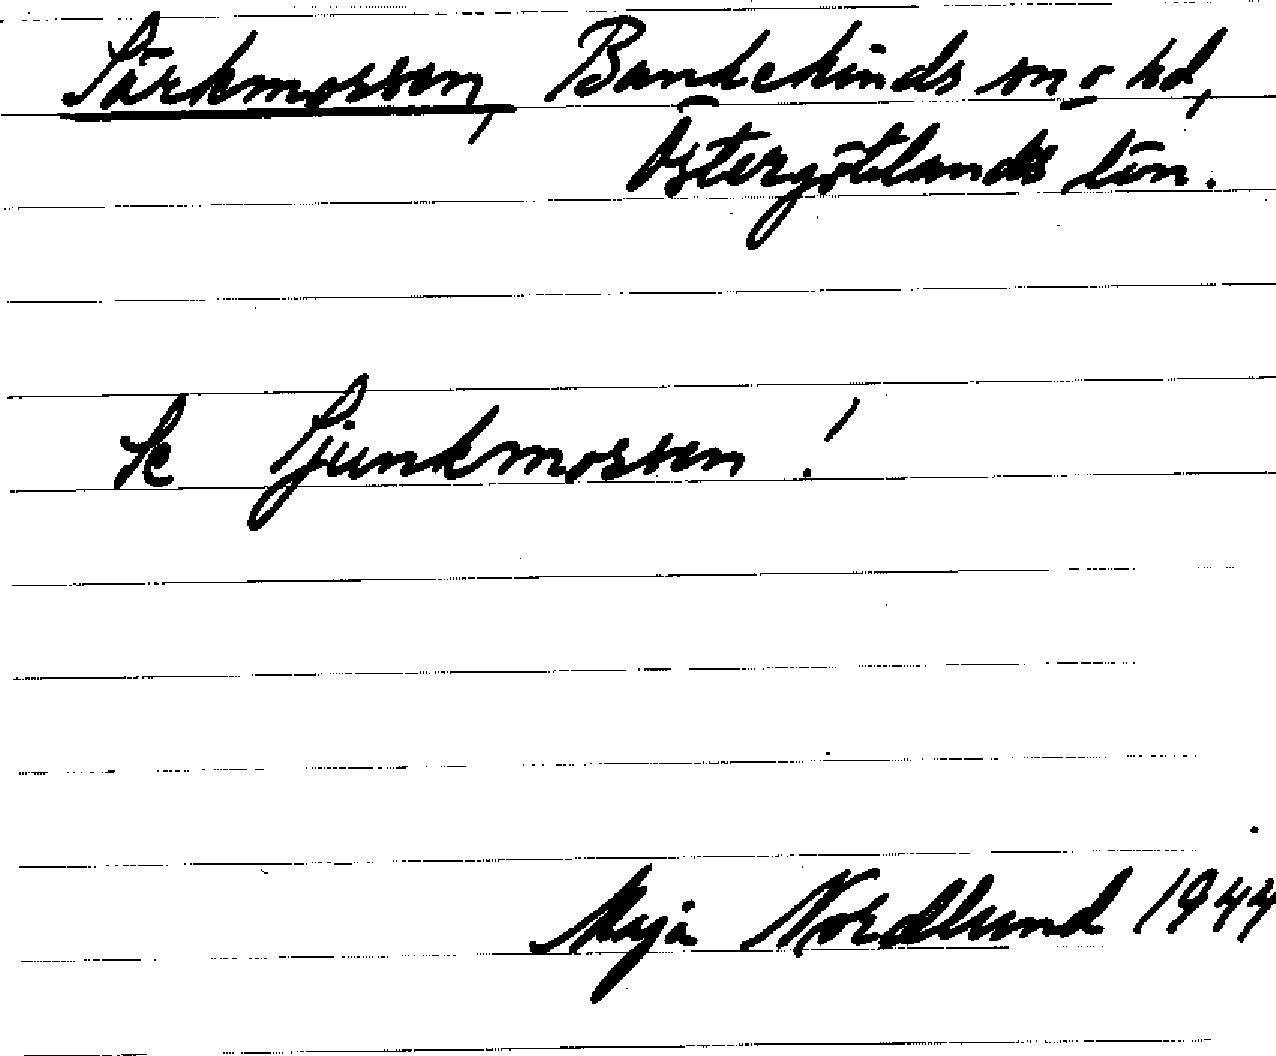 Särkmossen, Bankekinds sn o hd,
Östergötlands län.
Se Sjunkmossen!
Maja Nordlund 1944